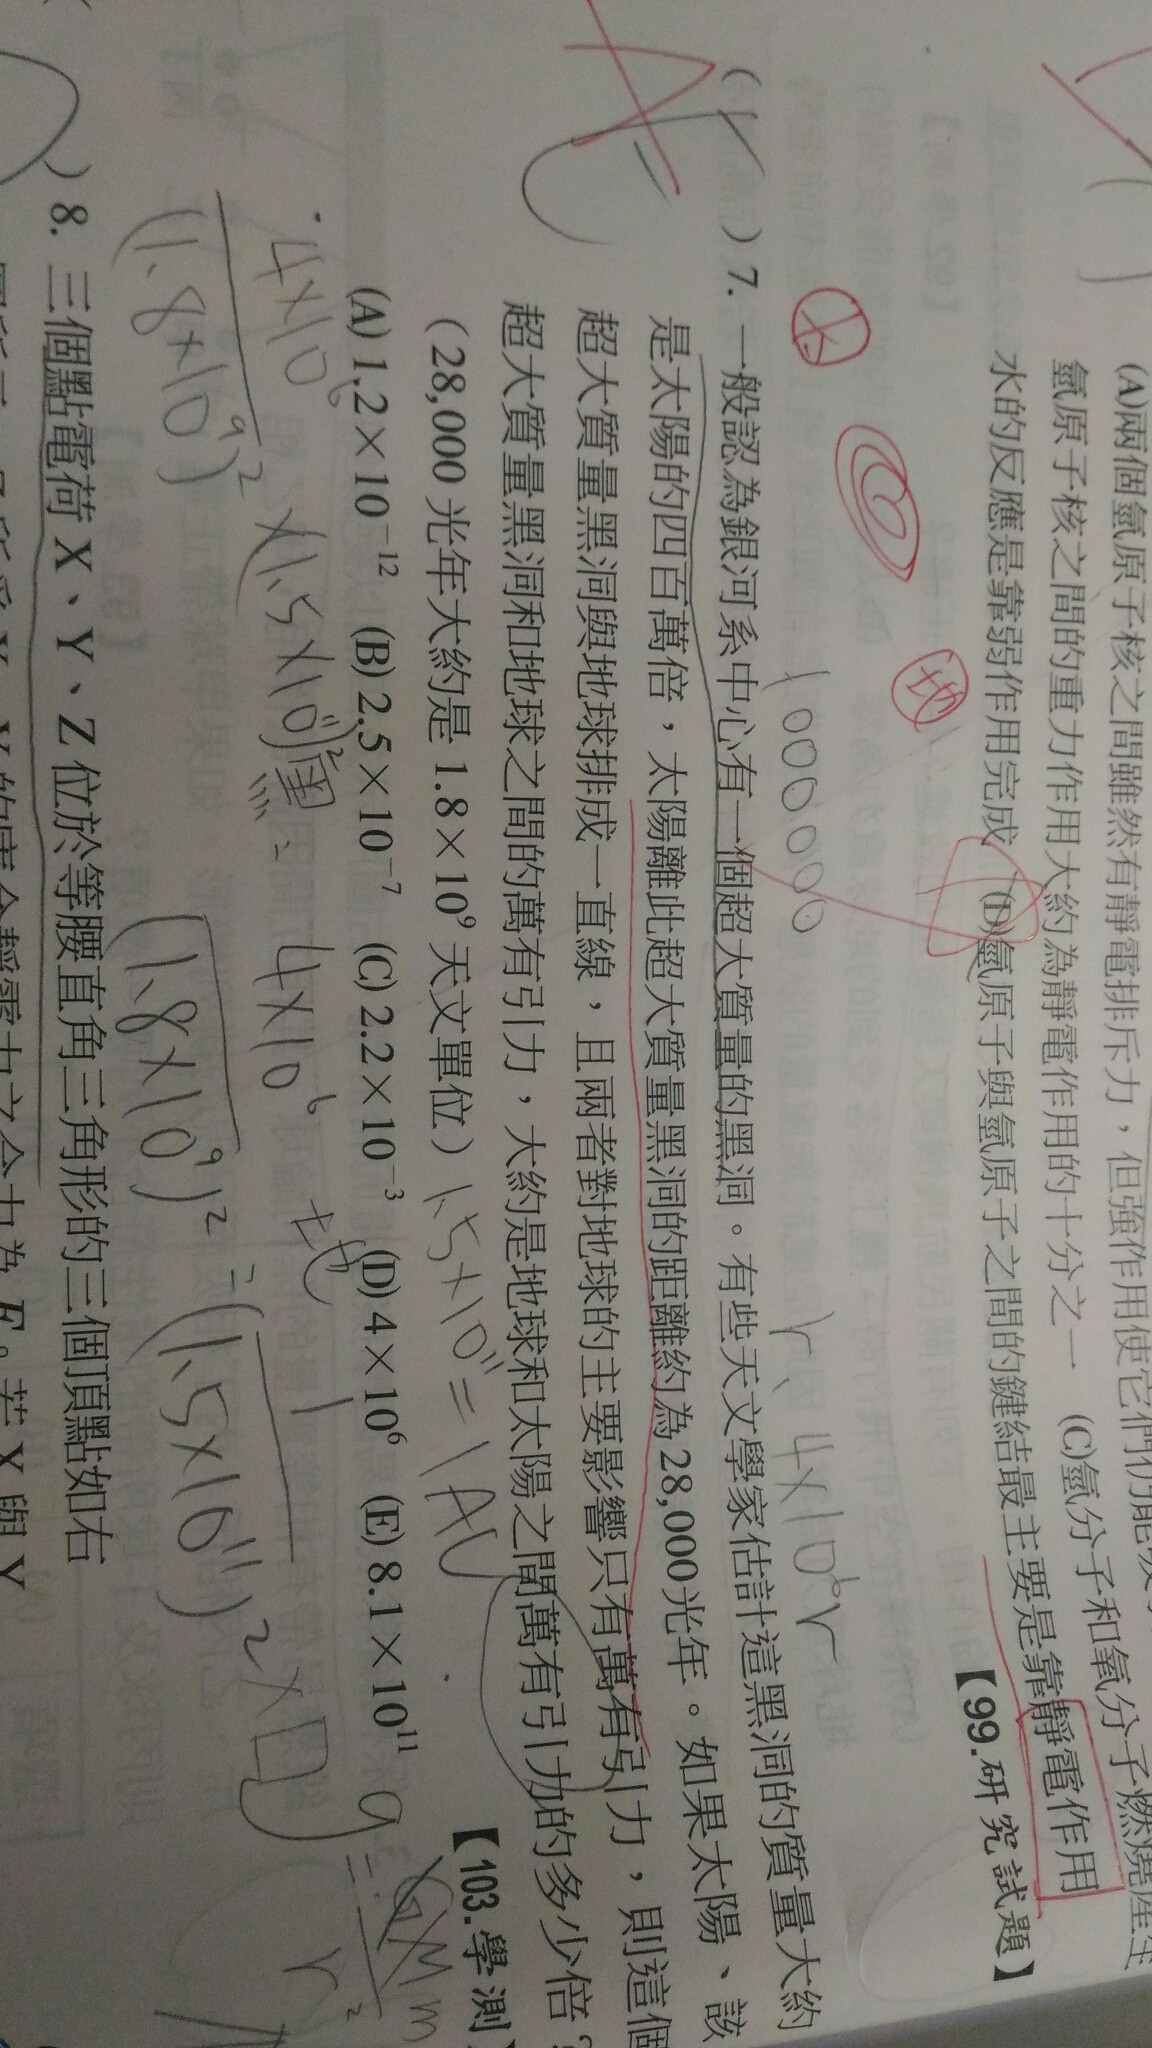 (A)兩個氫原子核之間雖然有靜電排斥力，但強作用使它們仍能
氫原子核之間的重力作用大約為靜電作用的十分之一 (C)氫分子和氧分子燃燒產生
水的反應是靠弱作用完成 (D)氫原子與氫原子之間的鍵結最主要是靠靜電作用
【99.研究試題】
太
地
1000000
r、4×10⁶r
( )7. 一般認為銀河系中心有一個超大質量的黑洞。有些天文學家估計這黑洞的質量大約
是太陽的四百萬倍，太陽離此超大質量黑洞的距離約為28,000光年。如果太陽、該
超大質量黑洞與地球排成一直線，且兩者對地球的主要影響只有萬有引力，則這個
超大質量黑洞和地球之間的萬有引力，大約是地球和太陽之間萬有引力的多少倍？
（28,000 光年大約是 1.8×10⁹ 天文單位） 1.5×10¹¹=1AU
【103.學測】
(A) 1.2×10⁻¹² (B) 2.5×10⁻⁷ (C) 2.2×10⁻³ (D) 4×10⁶ (E) 8.1×10¹¹
4×10⁶ ×(1.5×10¹¹)² 黑= 4×10⁶ 地 1 ×□ g= GMm
(1.8×10⁹)² (1.8×10⁹)² = (1.5×10¹¹)² r²
)8. 三個點電荷 X、Y、Z 位於等腰直角三角形的三個頂點如右
的庫侖靜電力之合力為 F。若 X 與 Y